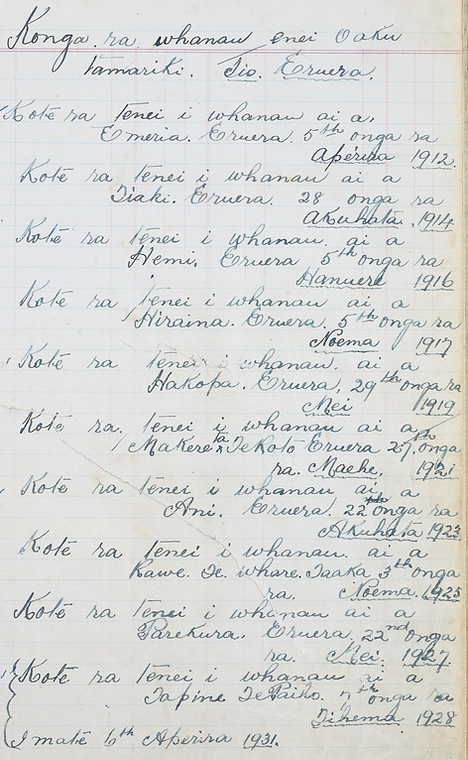 Konga. ra whanau enei Oaku
tamariki. Tio. Eruera.
Kote ra tenei i whanau ai a.
Emeria. Eruera. 5th onga ra
Aperira 1912.
Kote ra tenei i whanau ai a
Tiaki. Eruera. 28 onga ra
Akuhata. 1914
Kote ra tenei i whanau. ai a
Hemi. Eruera 5th onga ra
Hanuere 1916
Kote ra tenei i whanau ai a
Hiraina. Eruera. 5th onga ra
Noema 1917
Kote ra tenei i whanau. ai a
Hakopa. Eruera, 29th onga ra
Mei 1919
Kote ra. tenei i whanau ai a
Makereta Te Koto Eruera 27th onga
ra. Maehe. 1921
Kote ra tenei i whanau ai a
Ani. Eruera. 22 onga ra
Akuhata 1923
Kote ra tenei i whanau. ai a
Rawe. Te. whare. Taaka 3th onga
ra. Noema. 1925
Kote ra tenei i whanau ai a
Parekura. Eruera. 22nd onga
ra. Mei. 1927.
Kote ra tenei i whanau ai a
Tapine Te Paiho. 7th onga ra
Tihema 1928
I mate 6th Aperira 1931.